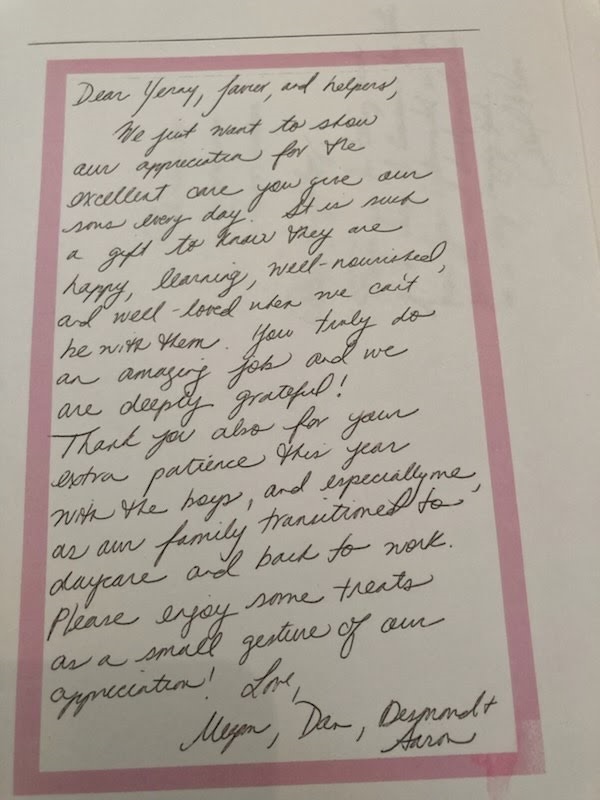 Dear Yenny, Javier, and helpers,
We just want to show
our appreciation for the
excellent care you give our
sons every day. It is such
a gift to know they are
happy, learning, well-nourished,
and well-loved when we can't
be with them. You truly do
an amazing job and we
are deeply grateful!
Thank you also for your
extra patience this year
with the boys, and especially me,
as our family transitioned to
daycare and back to work.
Please enjoy some treats
as a small gesture of our
appreciation! Love,
Megan, Dan, Desmond +
Aaron